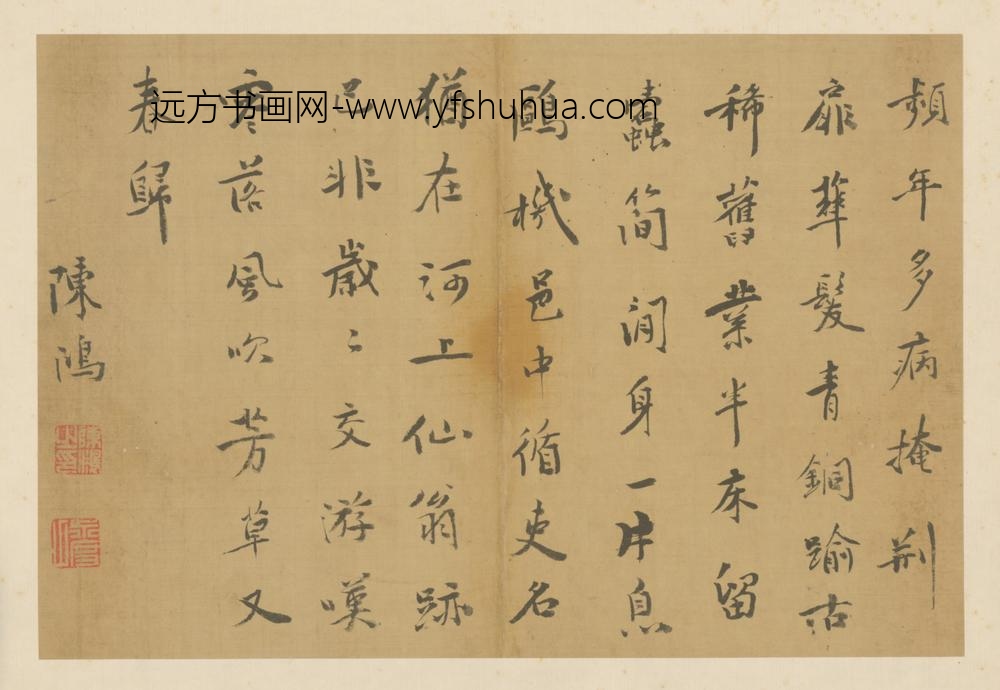 頻年多病掩荆
扉華髮青銅踰古
稀舊業半床留
蠹简閒身一片息
鷗機邑中循吏名
猶在河上仙翁跡
已非歲〻交游嘆
零落風吹芳草又
春歸
陳鴻
远方书画网-www.yfshuhua.com